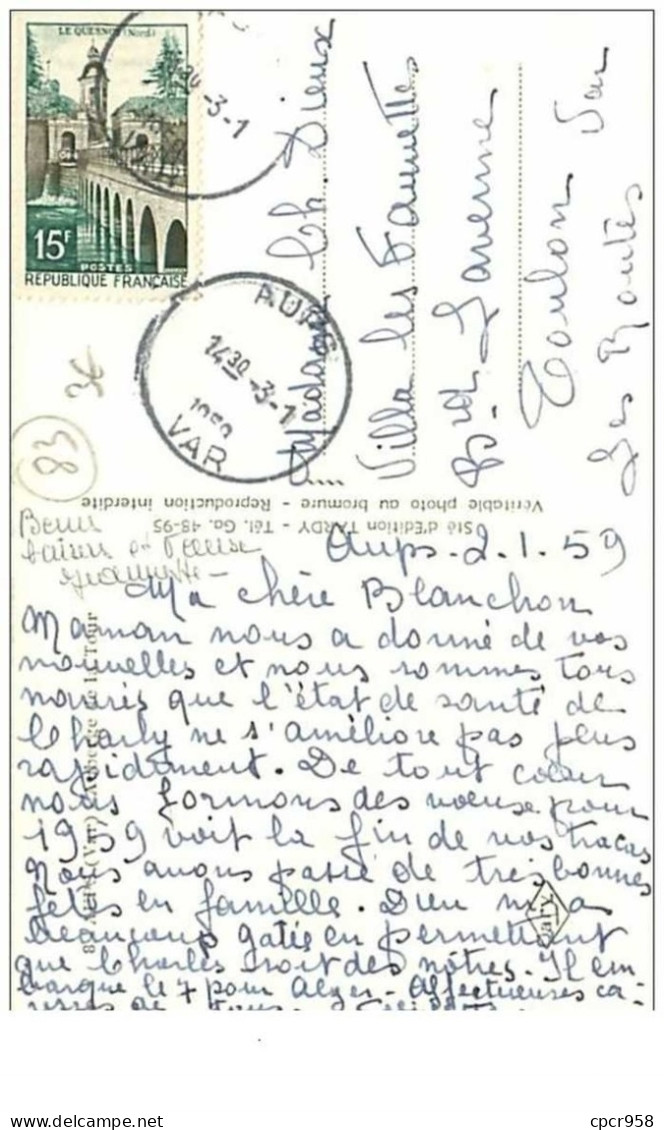 LE QUESNOY (Nord)
15F
POSTES
REPUBLIQUE FRANÇAISE
-3-1
AUPS
14 30 -3-1
1959
VAR
Madame Ch. Dieux
Villa les Fauvettes
Bd
Toulon Var
Les Routes
3€
83
Sté d'Edition TARDY - Tél. Ga. 48-95
Véritable photo au bromure - Reproduction interdite
83 AUPS (Var) - Auberge de la Tour
Gaby
Bons
baisers et
Aups. 2.1.59
Ma chère Blanchon
Maman nous a donné de vos
nouvelles et nous sommes tous
navrés que l'état de santé de
Charly ne s'améliore pas plus
rapidement. De tout coeur
nous formons des voeux pour
1959 voit la fin de vos tracas
Nous avons passé de très bonnes
fêtes en famille. Dieu m'a
beaucoup gâtée en permettant
que Charles soit des nôtres. Il em
barque le 7 pour Alger - Affectueuses ca-
resses de tous.
cpcr958